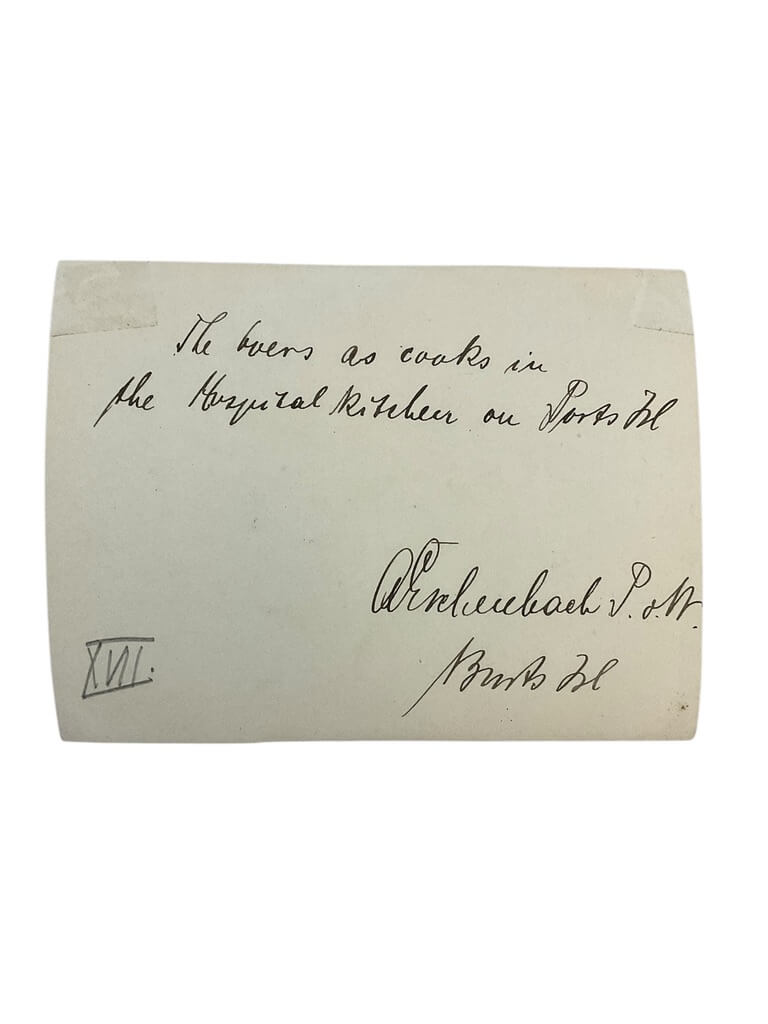 The boers as cooks in
the Hospital kitchen on Ports Isl
A Eschenbach P.o.W.
Burts Isl
XVII.